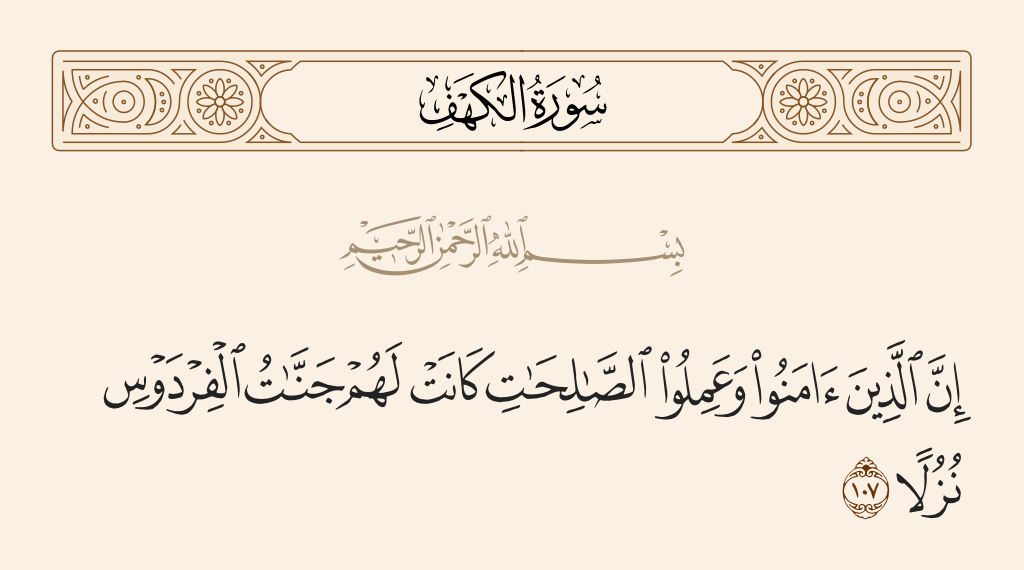 سُورَةُ الكَهۡفِ
بِسۡمِ ٱللَّهِ ٱلرَّحۡمَٰنِ ٱلرَّحِيمِ
إِنَّ ٱلَّذِينَ ءَامَنُواْ وَعَمِلُواْ ٱلصَّٰلِحَٰتِ كَانَتۡ لَهُمۡ جَنَّٰتُ ٱلۡفِرۡدَوۡسِ
نُزُلًا ١٠٧